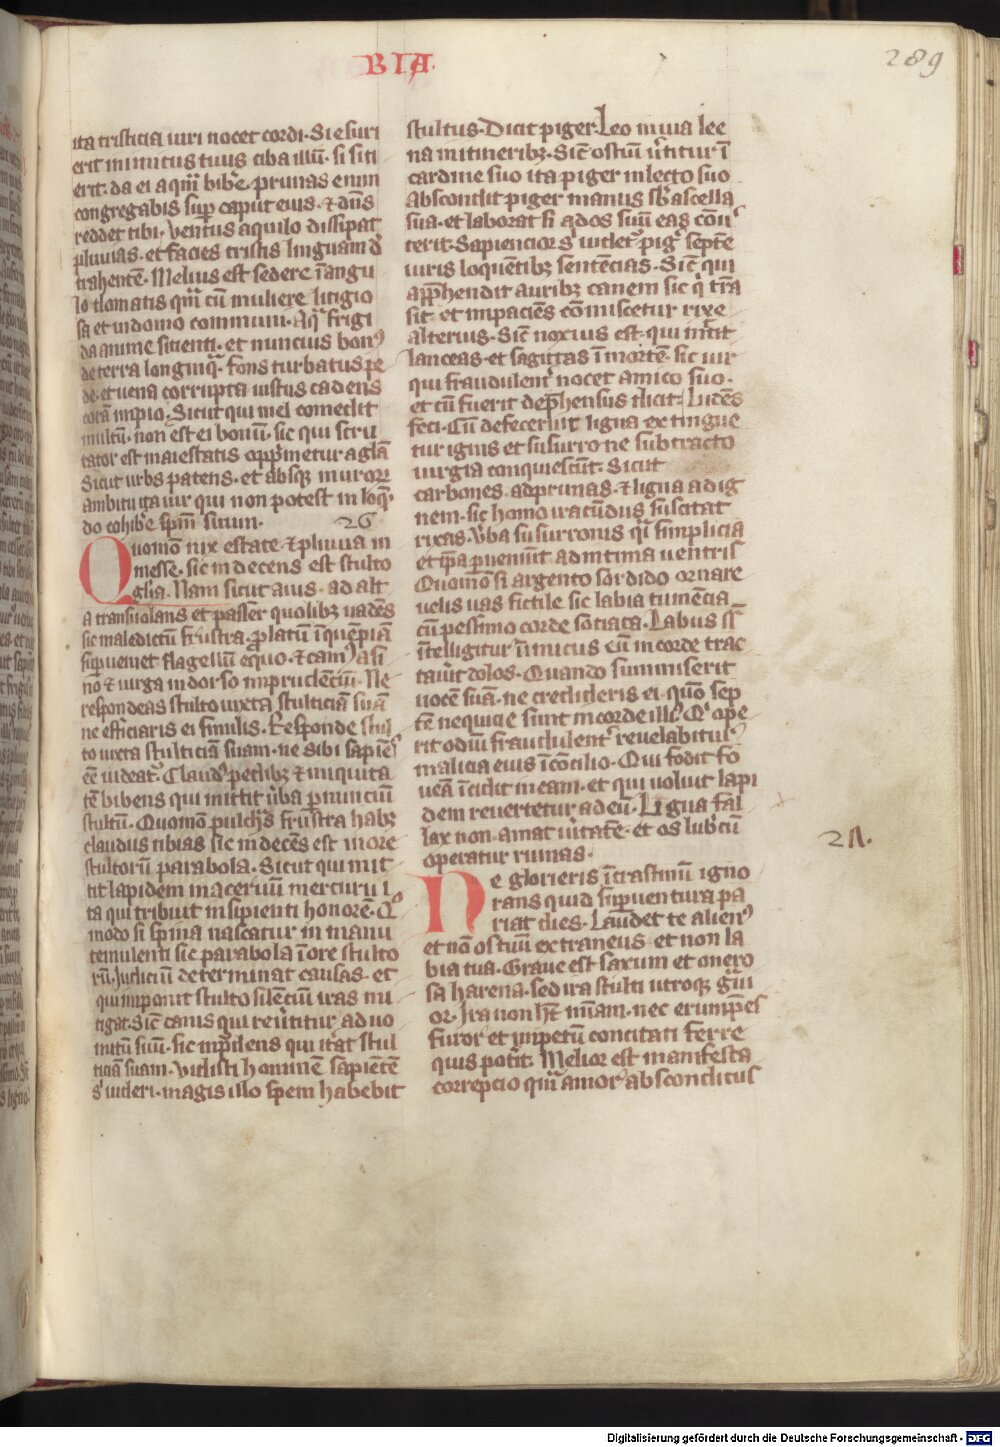 BIA.
289
ita tristicia uiri nocet cordi. Si esuri
erit inimicus tuus ciba illū. si siti
erit. da ei aqm̄ bibe. prunas enim
congregabis sup caput eius. & dūs
reddet tibi. Ventus aquilo dissipat
pluuias. et facies tristis linguam d
trahentē. Melius est sedere ī angu
lo domatis qm̄ cū muliere litigio
sa et in domo communi. Aq̄ frigi
da anime sitienti. et nuncius bon⁹
de terra longinq̄. Fons turbatus pe
de. et uena corrupta iustus cadens
corā impio. Sicut qui mel comedit
multū. non est ei bonū. sic qui scru
tator est maiestatis opp̄metur a glā
Sicut urbs patens. et absq; muroꝝ
ambitu ita uir qui non potest in loq̄
do cohibe sp̄m suum.
26
Quomō nix estate & pluuia in
messe. sic indecens est stulto
glīa. Nam sicut auis. ad alt
a transuolans et passer quolibꝫ uadēs
sic maledictū frustra. platū ī quēpiā
supueniet flagellū equo. & cam⁹ asi
nō & uirga in dorso imprudēciū. Ne
respondeas stulto iuxta stulticiā suā
ne efficiaris ei similis. Responde stul
to iuxta stulticiā suam. ne sibi sapiēs
eē uideat. Claud⁹ pedibꝫ & iniquita
tē bibens qui mittit ūba p nunciū
stultū. Quomō pulchs frustra habꝫ
claudus tibias sic indecēs est in ore
stultorū parabola. Sicut qui mit
tit lapidem in aceruū mercurii i
ta qui tribuit insipienti honorē. Qº
modo si spina nascatur in manu
temulenti sic parabola ī ore stulto
rū. Judiciū determinat causas. et
qui imponit stulto silēciū iras mi
tigat. Sic̄ canis qui reūtitur ad uo
mitū suū. sic inpdens qui itat stul
ticiā suam. Vidisti hominē sapiētē
s uideri. magis illo spem habebit
stultus. Dicit piger. Leo in uia lee
na in itineribꝫ. Sic̄ ostiū ūtitur ī
cardine suo ita piger in lecto suo
Abscondit piger manus sb ascella
sua. et laborat si ad os suū eas cōu
terit. Sapiencior s uidet piḡ septē
uiris loquētibꝫ sentēcias. Sic̄ qui
app̄hendit auribꝫ canem sic q̄ trā
sit et inpaciēs cōmiscetur rixe
alterius. Sic̄ noxius est. qui mittit
lanceas. et sagittas ī mortē. sic uir
qui fraudulent nocet amico suo.
et cū fuerit dep̄hensus dicit. Ludēs
feci. Cū defecerint ligna extingue
tur ignis et susurrone subtracto
iurgia conquiescūt. Sicut
carbones. ad prunas. & ligna ad ig
nem. sic homo iracūdus suscitat
rixas. Vba susurronis qi simplicia
et ip̄a pueniūt ad intima uentris
Quomō si argento sordido ornare
uelis uas fictile sic labia tumēcia
cū pessimo corde sociata. Labiis ss
ītelligitur inimicus cū in corde trac
tauit dolos. Quando summiserit
uocē suā. ne credideris ei. qūo sep
tē nequicie sunt in corde illi⁹. Q¹ ope
rit odiū fraudulent reuelabitur
malicia eius ī cōcilio. Qui fodit fo
ueā īcidit in eam. et qui uoluit lapi
dem reuertetur ad eū. Ligua fal
lax non amat ūitatē. et os lubcū
operatur ruinas.
27.
Ne glorieris ī crastinū igno
rans quid supuentura pa
riat dies. Laudet te alien⁹
et nō os tuū extraneus et non la
bia tua. Graue est saxum et onero
sa harena. sed ira stulti utroqꝫ gui
or. Ira non hꝫ miam. nec erumpēs
furor et impetū concitati ferre
quis potit. Melior est manifesta
correpcio qm̄ amor absconditus
Digitalisierung gefördert durch die Deutsche Forschungsgemeinschaft - DFG